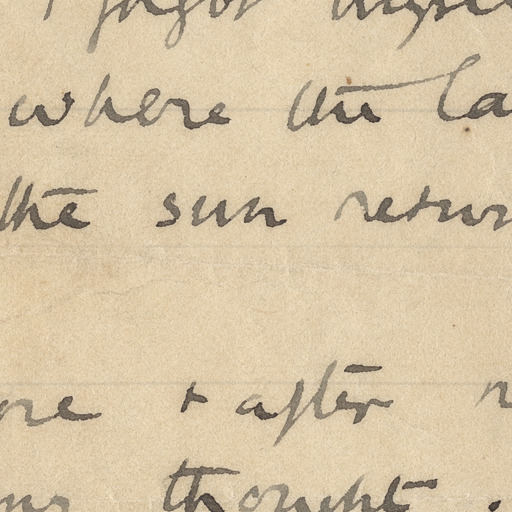 I forgot myse
where the la
the sun retur
ore + after
thought .